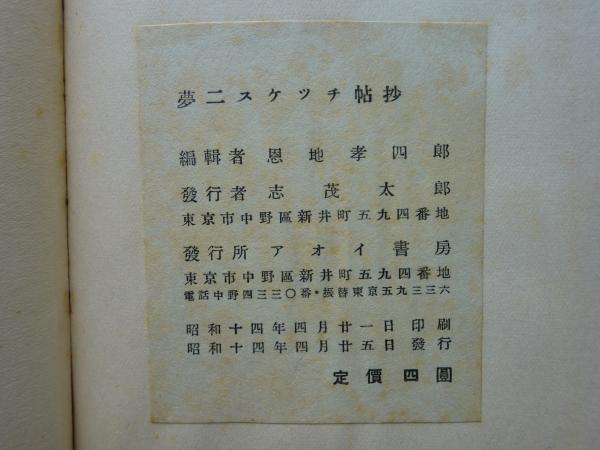 夢二スケツチ帖抄
編輯者 恩地孝四郎
發行者 志茂太郎
東京市中野區新井町五九四番地
發行所 アオイ書房
東京市中野區新井町五九四番地
電話中野四三三〇番・振替東京五九三三六
昭和十四年四月廿一日印刷
昭和十四年四月廿五日發行
定價四圓